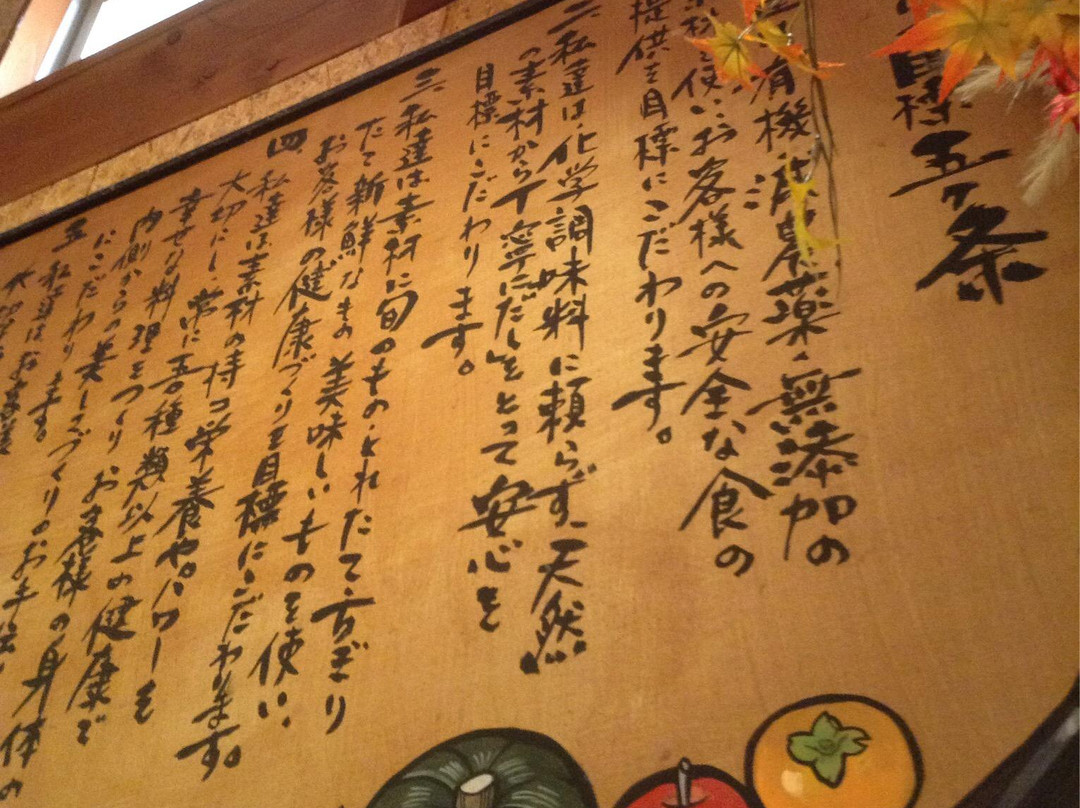 目標五ヶ条
有機減農薬、無添加の
使い、お客様への安全な食の
提供を目標にこだわります。
二、私達は、化学調味料に頼らず、天然
の素材から丁寧に「だし」をとって安心を
目標にこだわります。
三、私達は素材に旬のもの・とれたて・守ぎり
たて新鮮なもの美味しいものを使い、
お客様の健康づくりを目標にこだわります。
四、私達は素材の持つ栄養やパワーを
大切にし、常に五〇種類以上の健康で
幸せな料理をつくりお客様の身体の
内側からの美しさづくりのお手伝い
にこだわります。
五、私達はお客様